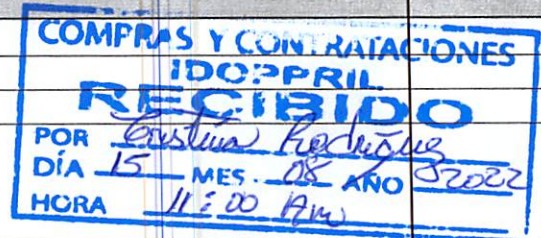 COMPRAS Y CONTRATACIONES
IDOPPRIL
RECIBIDO
POR Cristina Rodríguez
DÍA 15 MES. 08 AÑO 2022
HORA 11:00 Am